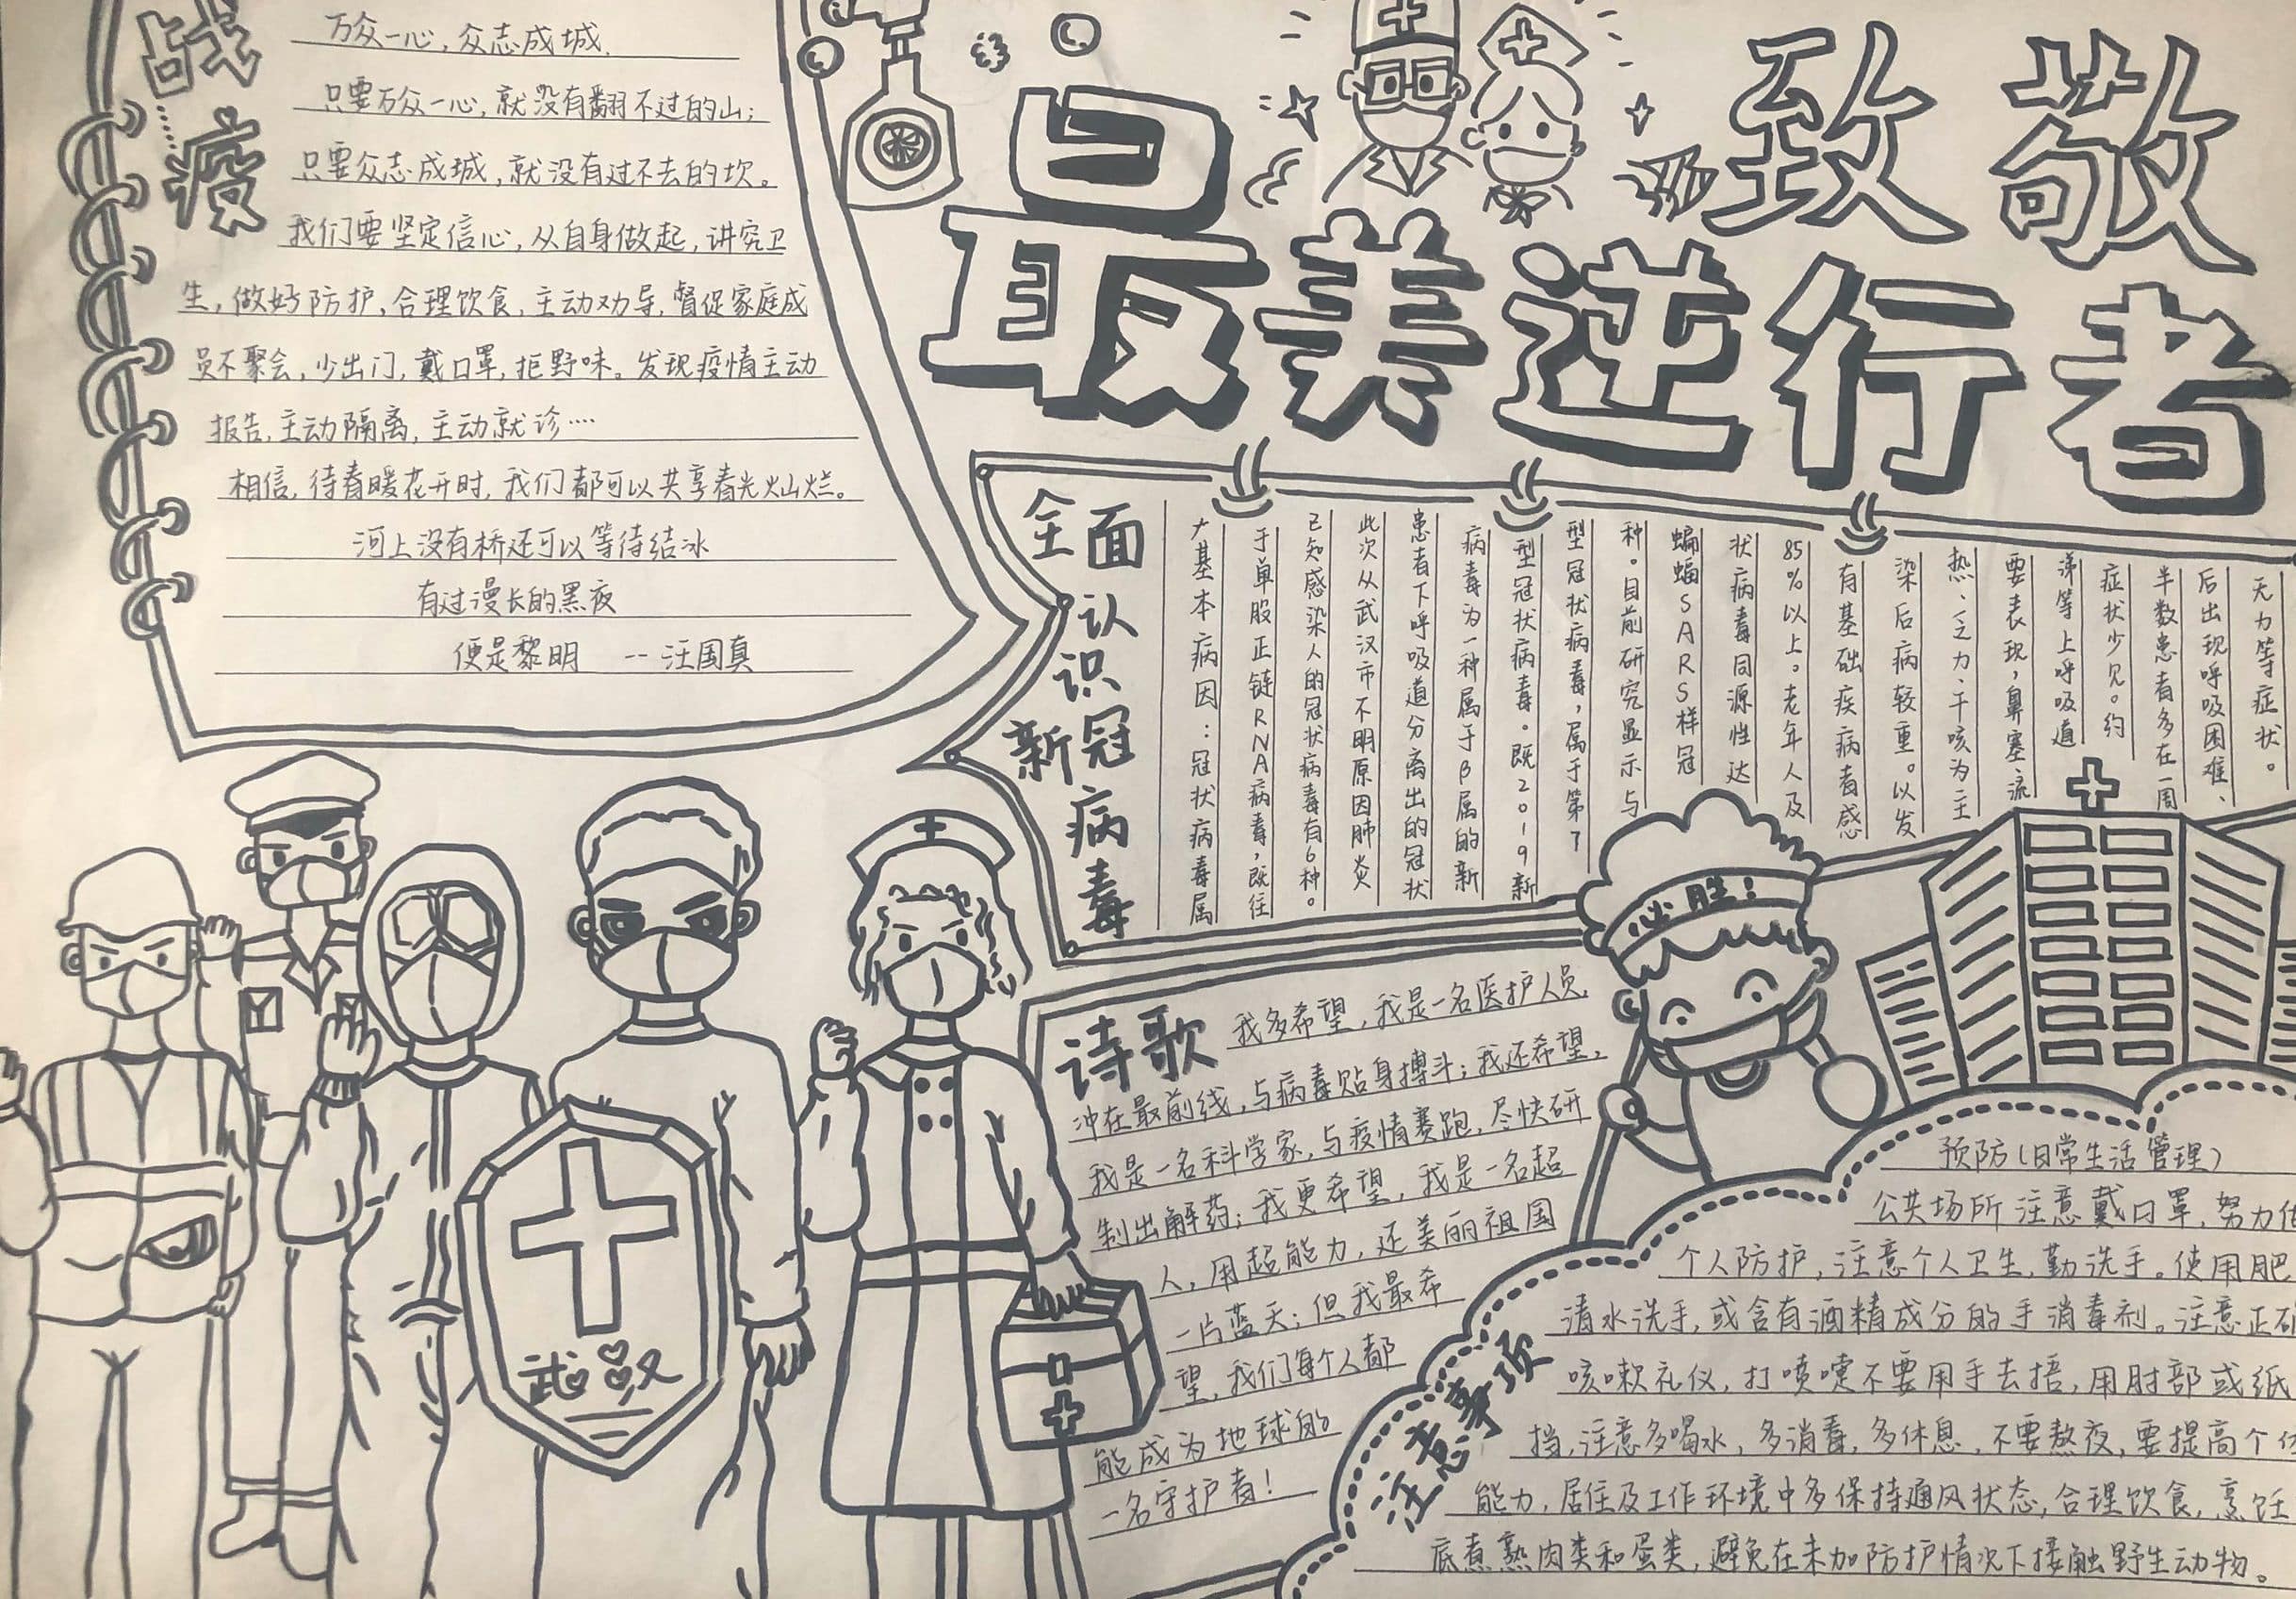 致敬
最美逆行者
战疫
万众一心，众志成城.
只要万众一心，就没有翻不过的山；
只要众志成城，就没有过不去的坎。
我们要坚定信心，从自身做起，讲究卫
生，做好防护，合理饮食，主动劝导，督促家庭成
员不聚会，少出门，戴口罩，拒野味。发现疫情主动
报告，主动隔离，主动就诊····
相信，待春暖花开时，我们都可以共享春光灿烂。
河上没有桥还可以等待结冰
有过漫长的黑夜
便是黎明 --汪国真
全面
认识
新冠
病毒
大基本病因：冠状病毒属
于单股正链RNA病毒，既往
已知感染人的冠状病毒有6种。
此次从武汉市不明原因肺炎
患者下呼吸道分离出的冠状
病毒为一种属于β属的新
型冠状病毒。既2019新
型冠状病毒，属于第7
种。目前研究显示与
蝙蝠SARS样冠
状病毒同源性达
85%以上。老年人及
有基础疾病者感
染后病较重。以发
热、乏力、干咳为主
要表现，鼻塞、流
涕等上呼吸道
症状少见。约
半数患者多在一周
后出现呼吸困难、
无力等症状。
必胜！
武汉
诗歌
我多希望，我是一名医护人员，
冲在最前线，与病毒贴身搏斗；我还希望，
我是一名科学家，与疫情赛跑，尽快研
制出解药；我更希望，我是一名超
人，用超能力，还美丽祖国
一片蓝天；但我最希
望，我们每个人都
能成为地球的
一名守护者！
注意事项
预防（日常生活管理）
公共场所注意戴口罩，努力
个人防护，注意个人卫生，勤洗手。使用肥
清水洗手，或含有酒精成分的手消毒剂。注意正
咳嗽礼仪，打喷嚏不要用手去捂，用肘部或纸
挡，注意多喝水，多消毒，多休息，不要熬夜，要提高个
能力，居住及工作环境中多保持通风状态，合理饮食，烹饪
底煮熟肉类和蛋类，避免在未加防护情况下接触野生动物。